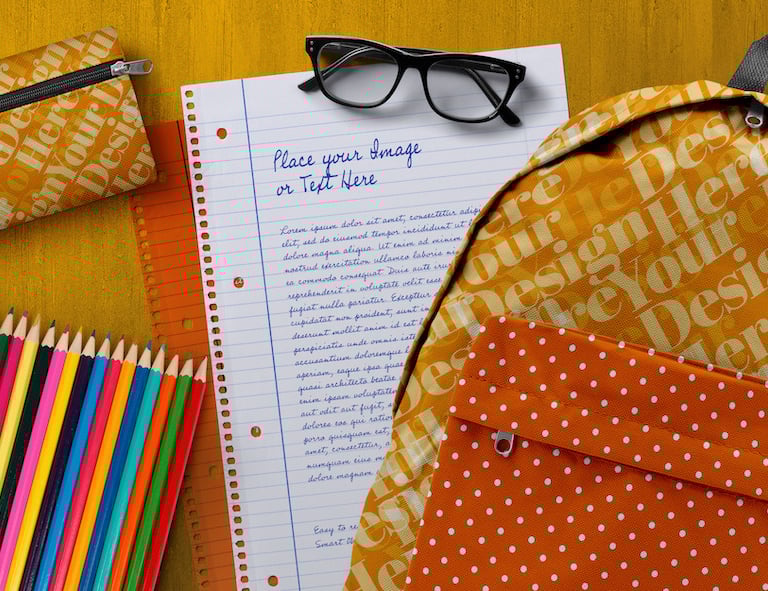 Design
Here
Your
Design
Place your Image
or Text Here
Lorem ipsum dolor sit amet, consectetur adipi
elit, sed do eiusmod tempor incididunt ut l
dolore magna aliqua. Ut enim ad minim
nostrud exercitation ullamco laboris ni
ea commodo consequat. Duis aute iru
reprehenderit in voluptate velit esse
fugiat nulla pariatur. Excepteur
cupidatat non proident, sunt in
deserunt mollit anim id est l
perspiciatis unde omnis ist
accusantium doloremque l
aperiam, eaque ipsa quae
quasi architecto beatae
enim ipsam voluptate
aut odit aut fugit,
dolores eos qui ration
porro quisquam est,
amet, consectetur, a
numquam eius m
dolore magnam
Easy to re
Smart Ob
Here Design
Your Here
Design Your
Here Design